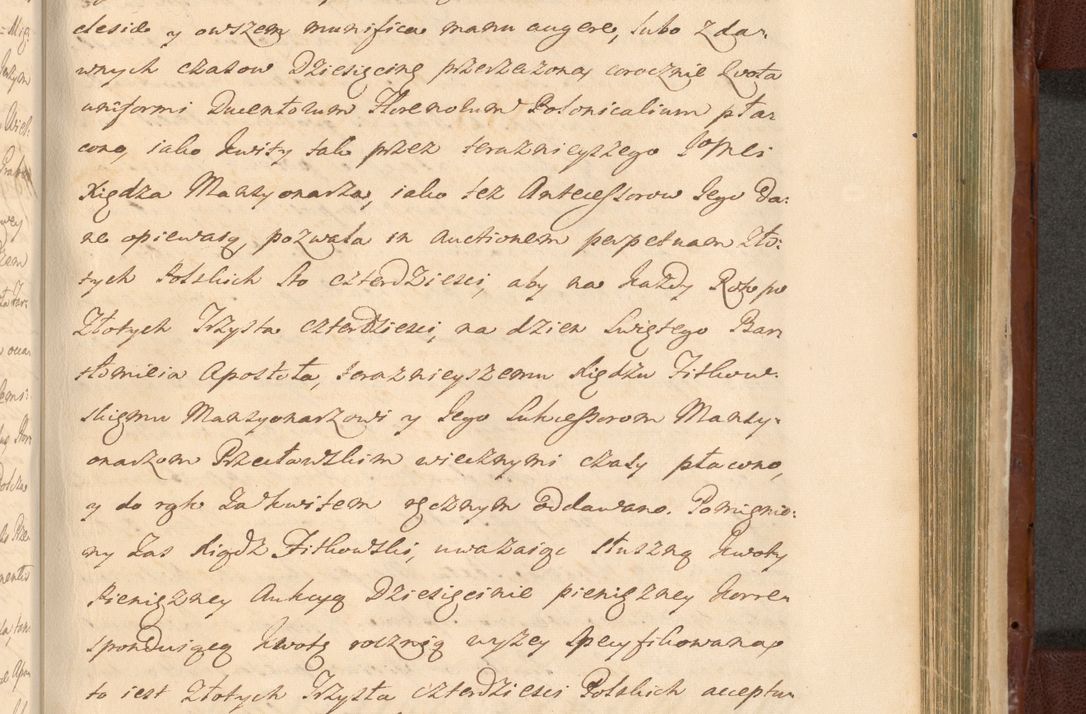 clesiæ y owszem munifica manu augere, lubo z da-
wnych czasow Dziesięcinę przerzeżoną corocznie Quota
uniformi Ducentorum Florenorum Polonicalium pła-
cono, iako kwity tak przez teraznieyszego Jmci
Xiędza Mansyonarza, iako też Antecessorow Jego da-
ne opiewaią, pozwala in Auctionem perpetuam Zło-
tych Polskich sto czterdzieści, aby na każdy Rok po
Złotych Trzysta czterdzieści, na dzien Swiętego Bar
tłomieia Apostoła, teraznieyszemu Xiędzu Fitkow-
skiemu Mansyonarzowi y Jego Sukcessorom Mansy-
onarzom Przecławskim wiecznymi czasy płacono,
y do rąk za kwitem ręcznym oddawano. Pomienio-
ny zas Xiądz Fitkowski, uważaiąc słuszną kwoty
Pieniężney Aukcyą Dziesięcinie pieniężney korre
sponduiącą kwotę roczną wyżey specyfikowaną
to iest Złotych Trzysta czterdzieści Polskich acceptu